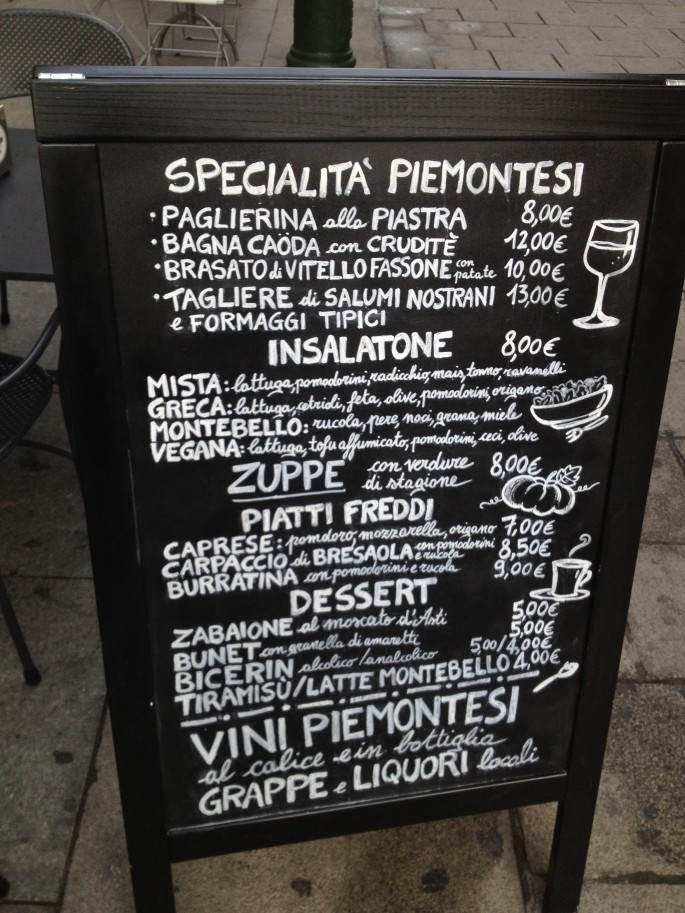 SPECIALITA' PIEMONTESI
• PAGLIERINA alla PIASTRA 8,00€
• BAGNA CAÖDA con CRUDITÈ 12,00€
• BRASATO di VITELLO FASSONE con patate 10,00€
• TAGLIERE di SALUMI NOSTRANI 13,00€
e FORMAGGI TIPICI
INSALATONE 8,00€
MISTA: lattuga, pomodorini, radicchio, mais, tonno, ravanelli
GRECA: lattuga, cetrioli, feta, olive, pomodorini, origano
MONTEBELLO: rucola, pere, noci, grana, miele
VEGANA: lattuga, tofu affumicato, pomodorini, ceci, olive
ZUPPE con verdure di stagione 8,00€
PIATTI FREDDI
CAPRESE: pomodoro, mozzarella, origano 7,00€
CARPACCIO di BRESAOLA con pomodorini e rucola 8,50€
BURRATINA con pomodorini e rucola 9,00€
DESSERT
ZABAIONE al moscato d'Asti 5,00€
BUNET con granella di amaretti 5,00€
BICERIN alcolico/analcolico 5,00/4,00€
TIRAMISÙ/LATTE MONTEBELLO 4,00€
VINI PIEMONTESI
al calice e in bottiglia
GRAPPE e LIQUORI locali